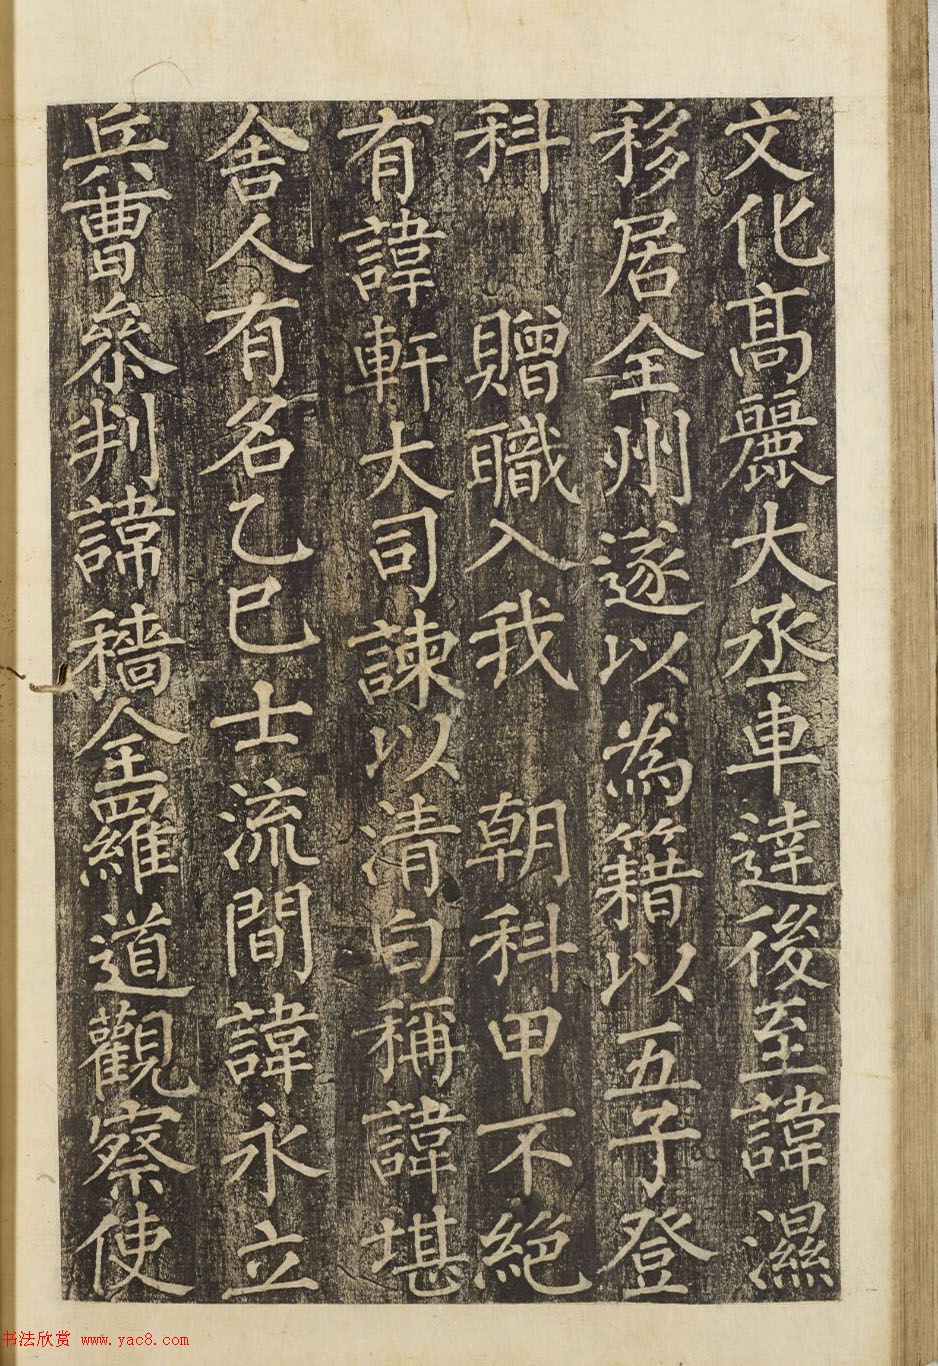 文化髙麗大丞車達後至諱濕
移居全州遂以為籍以五子登
科 贈職入我 朝科甲不絕
有諱軒大司諫以清白稱諱堪
舍人有名乙巳士流間諱永立
兵曹叅判諱穡全羅道觀察使
书法欣赏 www.yac8.com